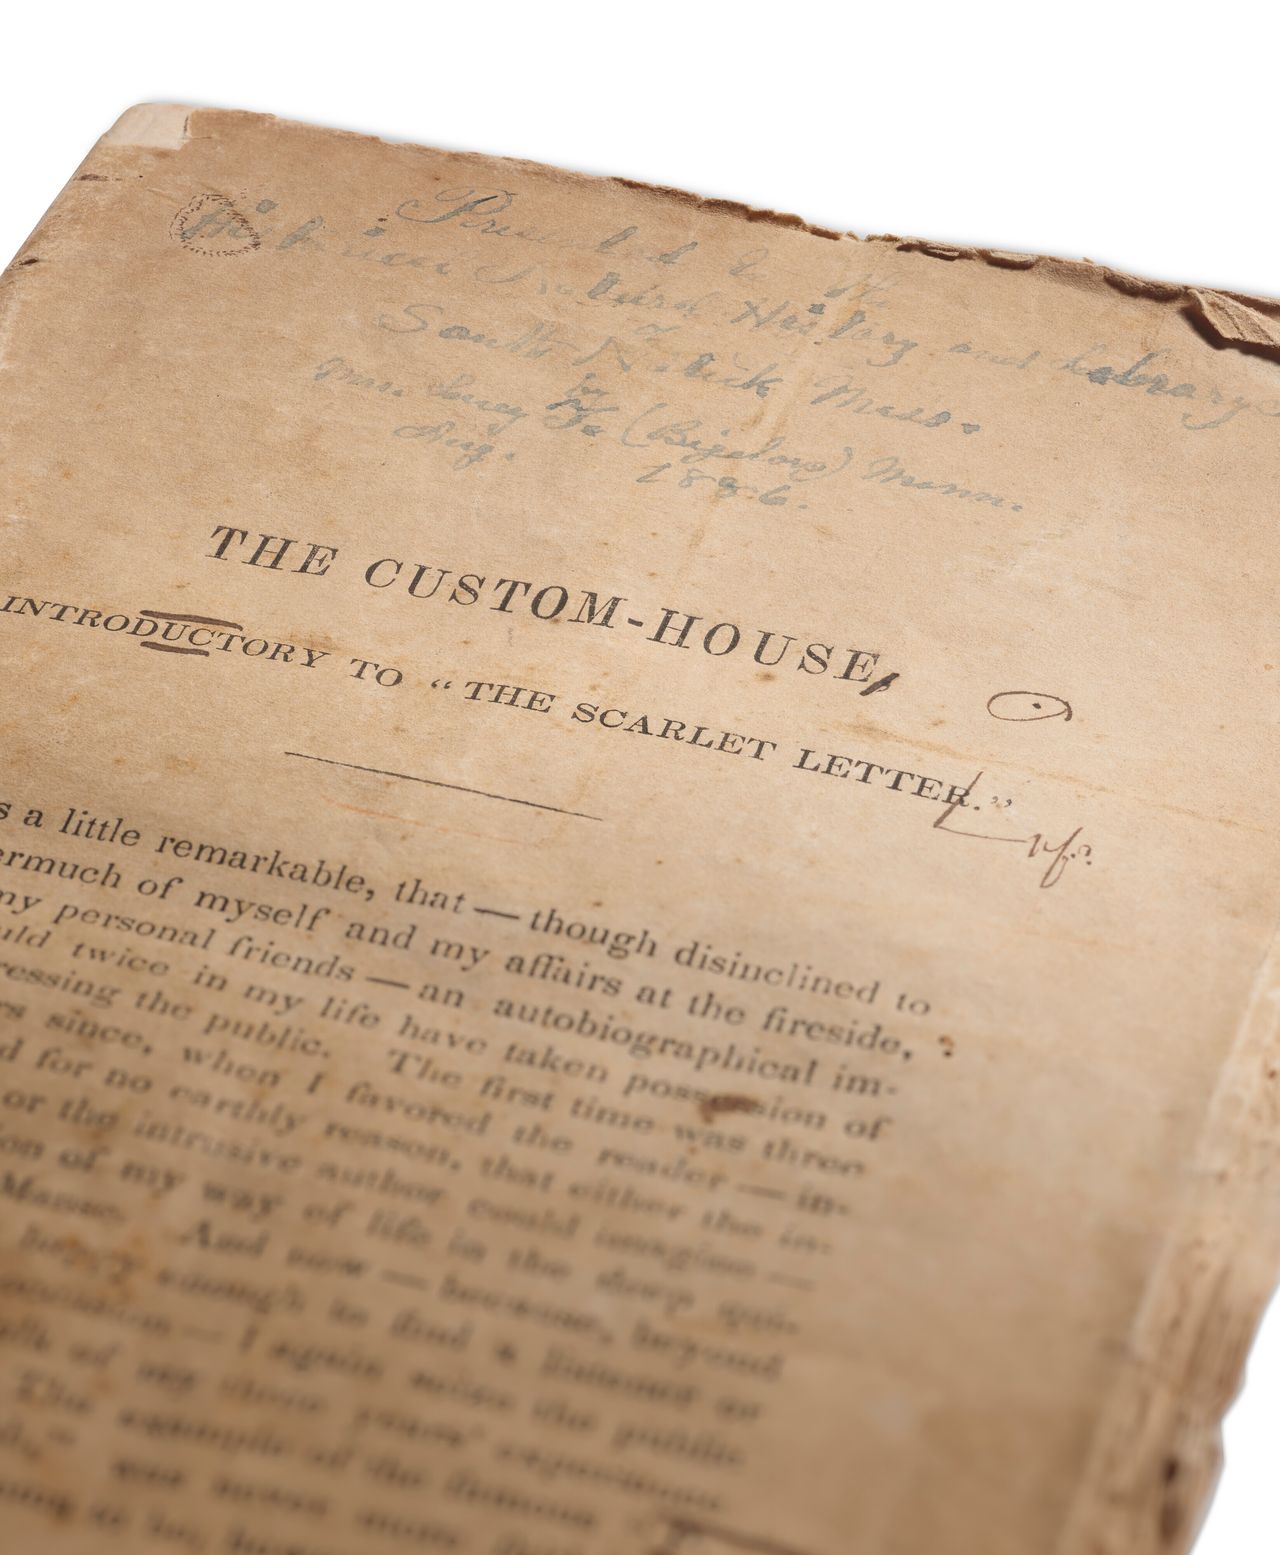 Presented to the
Historical Natural History and Library
South Natick Mass.
by
Mrs. Lucy F. (Bigelow) Mann.
Aug. 1886.
THE CUSTOM-HOUSE,
INTRODUCTORY TO "THE SCARLET LETTER."
s a little remarkable, that — though disinclined to
ermuch of myself and my affairs at the fireside,
my personal friends — an autobiographical im-
uld twice in my life have taken possession of
ressing the public. The first time was three
rs since, when I favored the reader — in-
d for no earthly reason, that either the in-
or the intrusive author could imagine —
ion of my way of life in the deep qui-
Manse. And now — because, beyond
happy enough to find a listener or
occasion — I again seize the public
of my three years' experience
The example of the famous
was never more